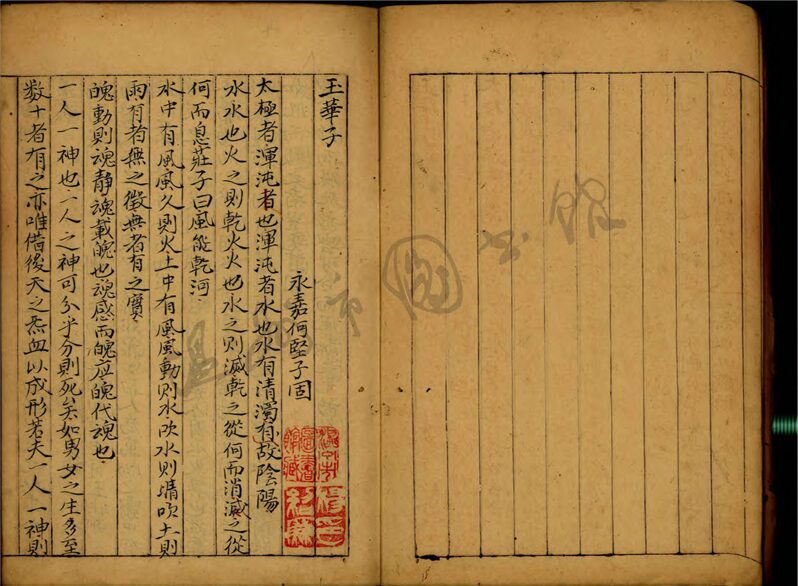 玉華子
永嘉何堅子固
太極者渾沌者也渾沌者水也水有清濁有故陰陽
水水也火之則乾火火也水之則滅乾之從何而消滅之從
何而息莊子曰風能乾河
水中有風風久則火土中有風風動則水吹水則晴吹土則
雨有者無之徵無者有之實
魄動則魂静魂載魄也魂感而魄应魄代魂也
一人一神也一人之神可分乎分則死矣如男女之生多至
数十者有之亦唯借後天之炁血以成形若夫一人一神則
市圖書館